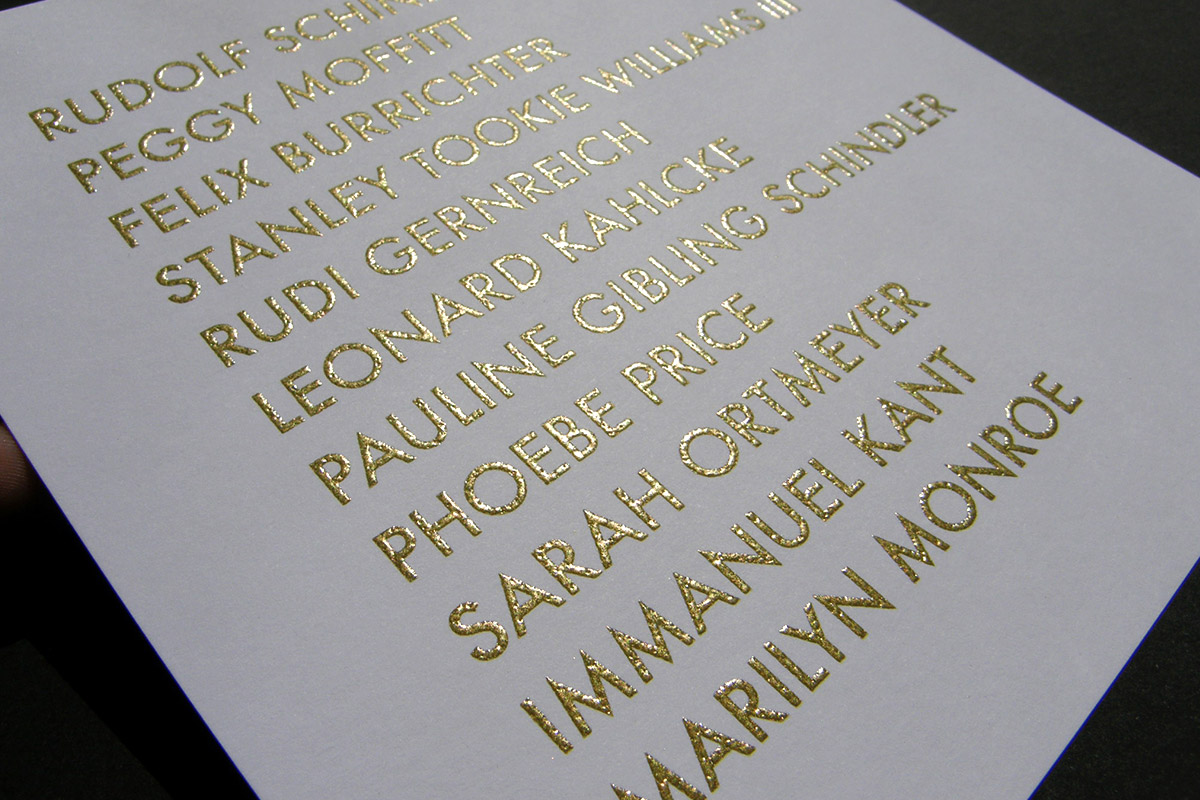 RUDOLF SCHIN
PEGGY MOFFITT
FELIX BURRICHTER
STANLEY TOOKIE WILLIAMS III
RUDI GERNREICH
LEONARD KAHLCKE
PAULINE GIBLING SCHINDLER
PHOEBE PRICE
SARAH ORTMEYER
IMMANUEL KANT
MARILYN MONROE